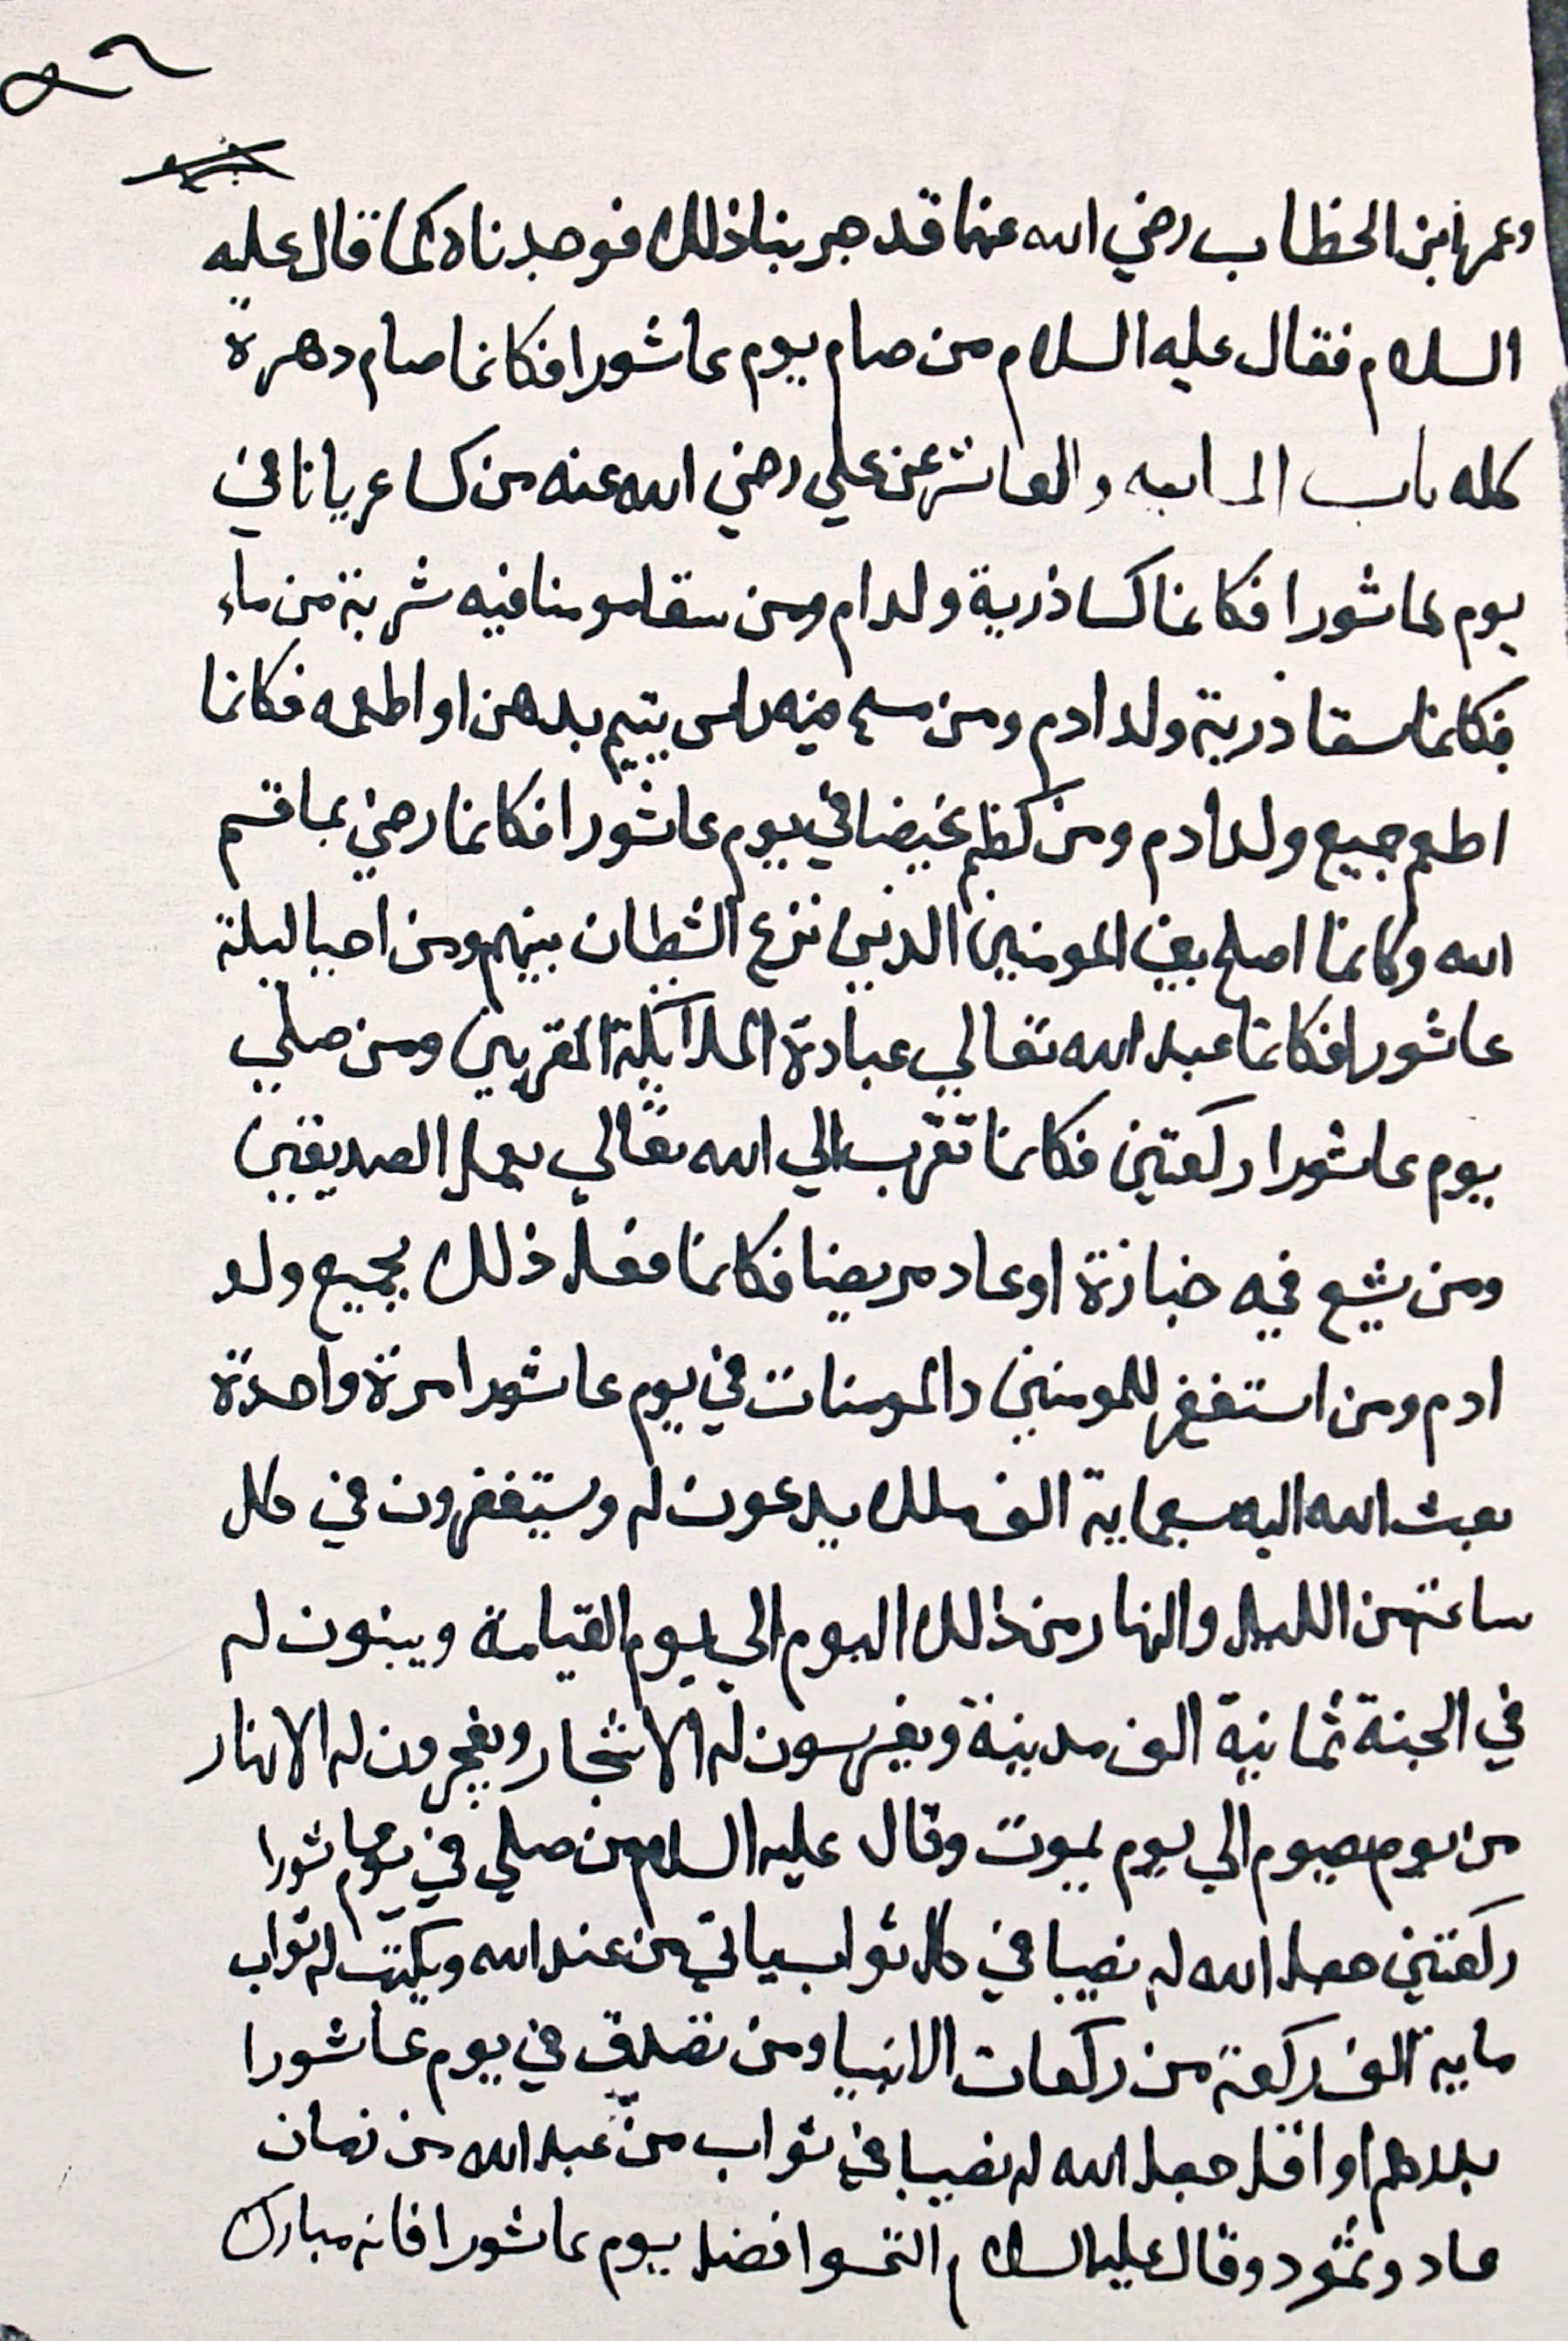 وعمر ابن الخطاب رضي الله عنهما قد جربنا ذلك فوجدناه كما قال عليه
السلام فقال عليه السلام من صام يوم عاشورا فكانما صام دهرة
كله باب والعاشر عن علي رضي الله عنه من كسا عريانا في
يوم عاشورا فكانما كسا ذرية ولد ادم ومن سقا مومنا فيه شربة من ماء
فكانما سقا ذرية ولد ادم ومن مسح فيه راس يتيم بدهن او اطعمه فكانما
اطعم جميع ولد ادم ومن كظم غيضا في يوم عاشورا فكانما رضي بما قسم
الله وكانما اصلح بين المومنين الذين نزع الشيطان بينهم ومن احيا ليلة
عاشورا فكانما عبد الله تعالي عبادة الملآئكة المقربين ومن صلي
يوم عاشورا ركعتين فكانما تقرب الي الله تعالي بعمل الصديقين
ومن يشيع فيه جنازة او عاد مريضا فكانما فعل ذلك بجميع ولد
ادم ومن استغفر للمومنين والمومنات في يوم عاشورا مرة واحدة
بعث الله اليه سبعماية الف ملك يدعون له ويستغفرون في كل
ساعة من الليل والنهار من ذلك اليوم الي يوم القيامة ويبنون له
في الجنة ثمانية الف مدينة ويغرسون له الاشجار ويفجرون له الانهار
من يوم يصوم الي يوم يموت وقال عليه السلام من صلي في يوم عاشورا
ركعتين جعل الله له نصيبا في كل ثواب ياتي من عند الله ويكتب له ثواب
ماية الف ركعة من ركعات الانبيا ومن تصدق في يوم عاشورا
بدرهم او اقل جعل الله له نصيبا في ثواب من عبد الله من زمان
عاد وثمود وقال عليه السلام التمسوا فضل يوم عاشورا فانه مبارك